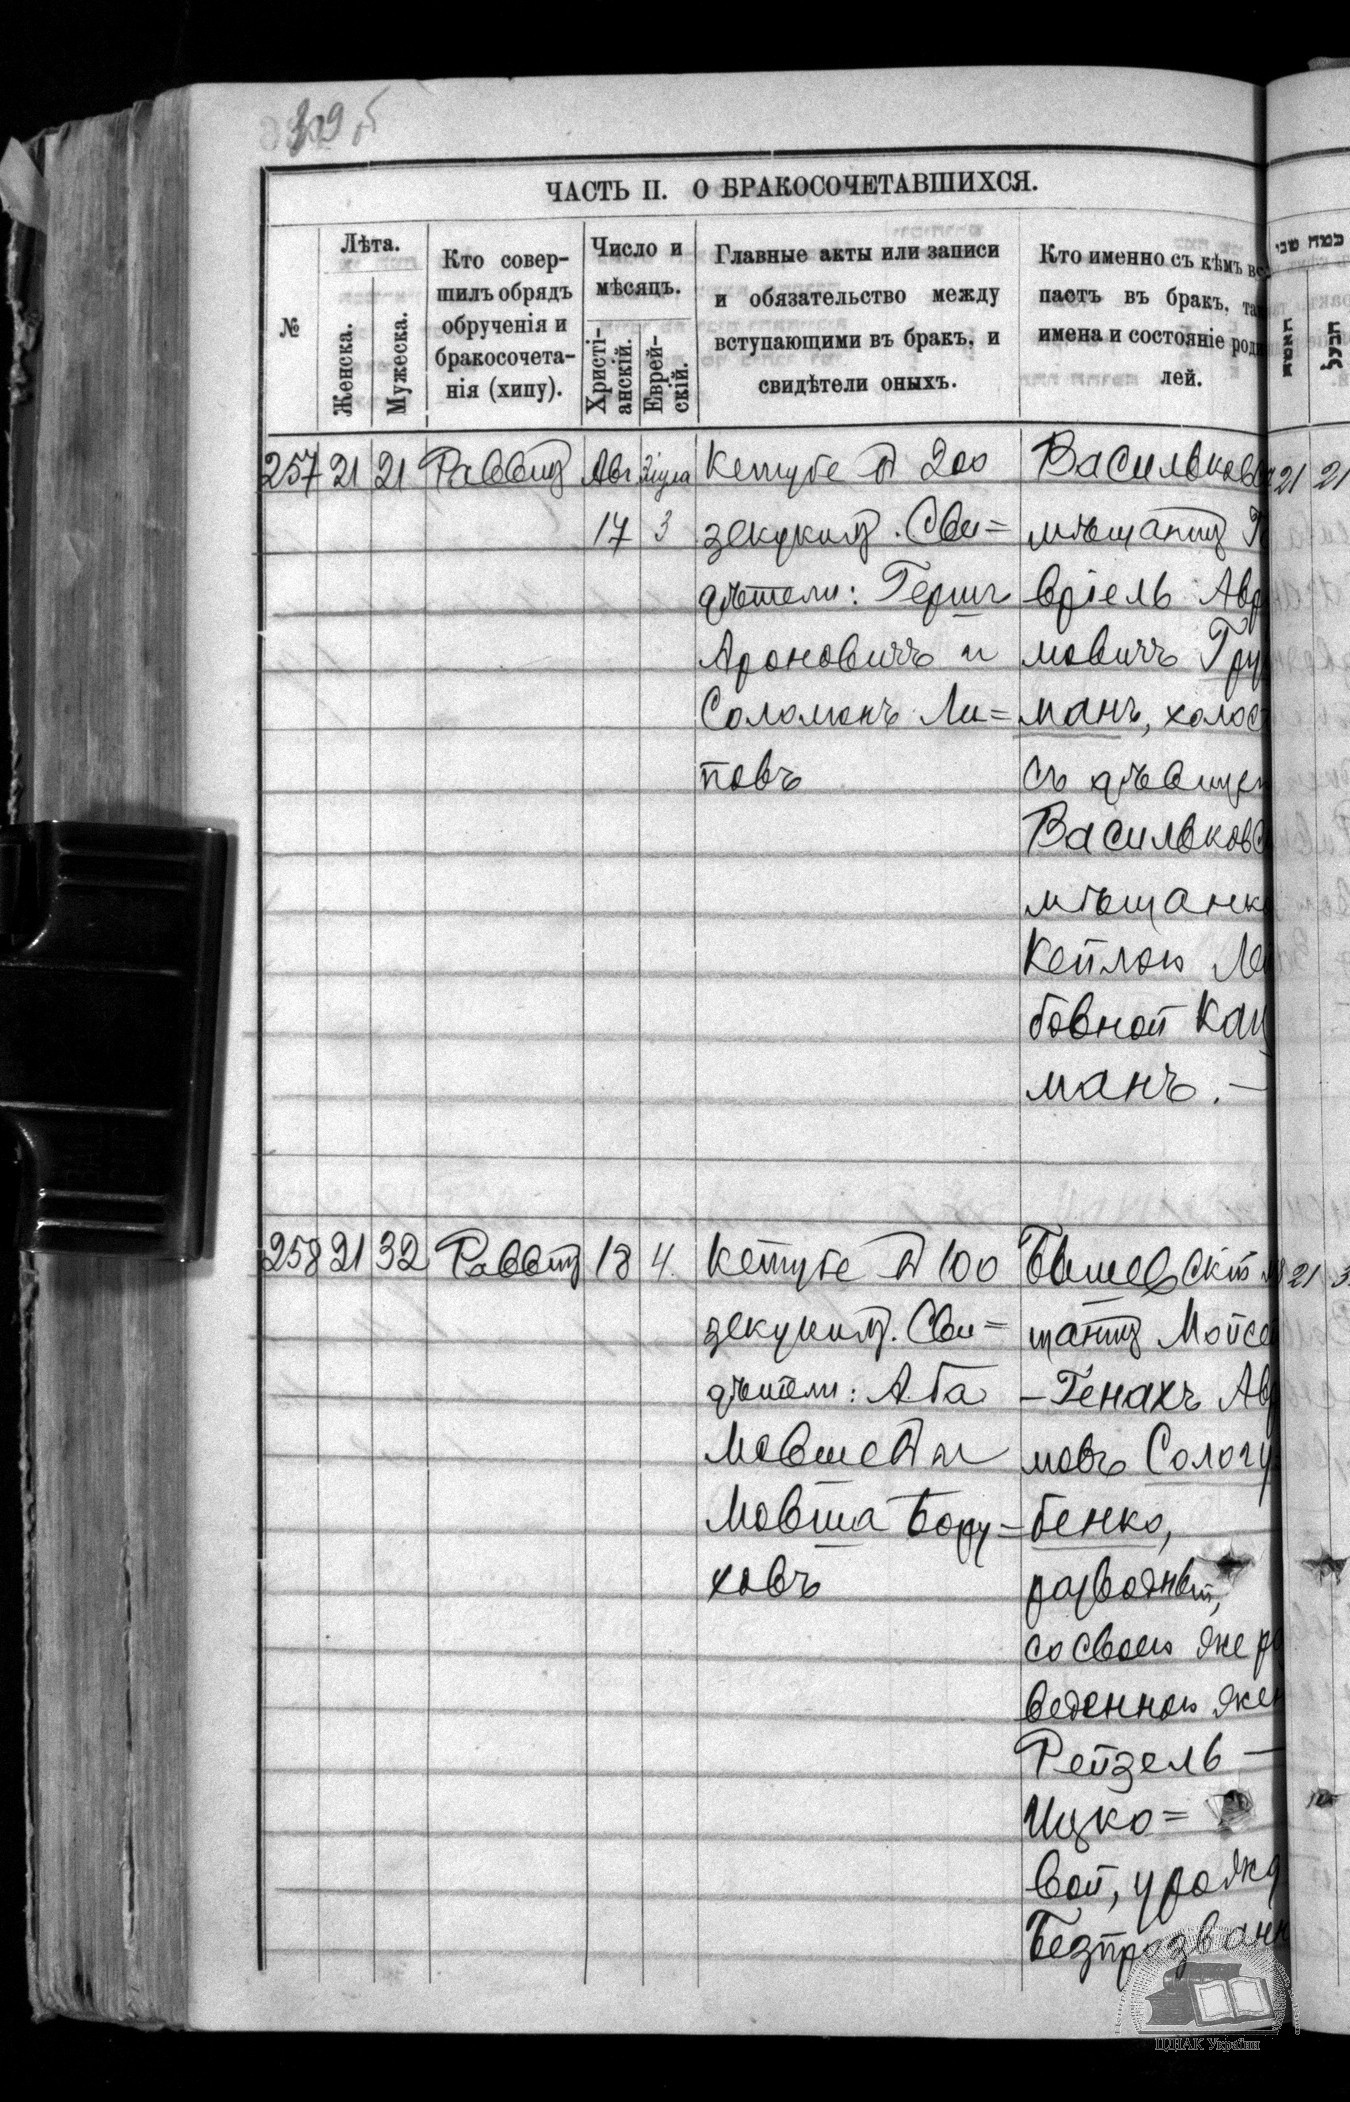 ЧАСТЬ II. О БРАКОСОЧЕТАВШИХСЯ.
№
Лѣта.
Женска.
Мужеска.
Кто совер-
шилъ обрядъ
обрученія и
бракосочета-
нія (хипу).
Число и
мѣсяцъ.
Христі-
анскій.
Еврей-
скій.
Главные акты или записи
и обязательство между
вступающими въ бракъ, и
свидѣтели оныхъ.
Кто именно съ кѣмъ вс
паетъ въ бракъ, та
имена и состояніе роди
лей.
כמה שני
האשה
הבעל
257 21 21 Раввинъ Авг
17 3
Кетубе въ 200
зекукимъ. Сви=
дѣтели: Гершъ
Ароновичъ и
Соломонъ Ли=
повъ
Васильковс
мѣщанинъ Г
вріель Авр
мовичъ Гру
манъ, холост
съ дѣвицею
Васильковс
мѣщанк
Кейлою Ле
бовной Кау
манъ. —
21 21
258 21 32 Раввинъ 18 4.
Кетубе въ 100
зекукимъ. Сви=
дѣтели: Аба
Мовшевъ и
Мовша Бору=
ховъ
Бышевскій м
щанинъ Мойсе
-Генахъ Авр
мовъ Сологу
бенко,
разводный,
со своею же ра
веденною жен
Рейзель —
Ицко=
вой, урожд
Безпрозванн
21 3
ЦДІАК України